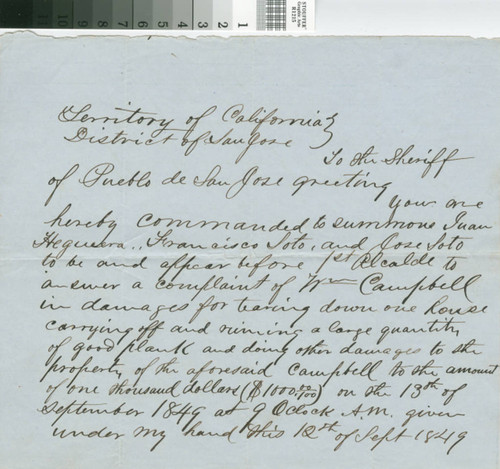 11 10 9 8 7 6 5 4 3 2 1
Territory of California }
District of San Jose
To the Sheriff
of Pueblo de San Jose greeting
You are
hereby commanded to summons Juan
Heguerra, Francisco Soto, and Jose Soto
to be and appear before 1st Alcalde to
answer a complaint of Wm Campbell
in damages for tearing down one house
carrying off and ruining a large quantity
of good plank and doing other damages to the
property of the aforesaid Campbell to the amount
of one thousand dollars ($1000 00/100) on the 13th of
September 1849 at 9 Oclock A.M. given
under my hand this 12th of Sept 1849